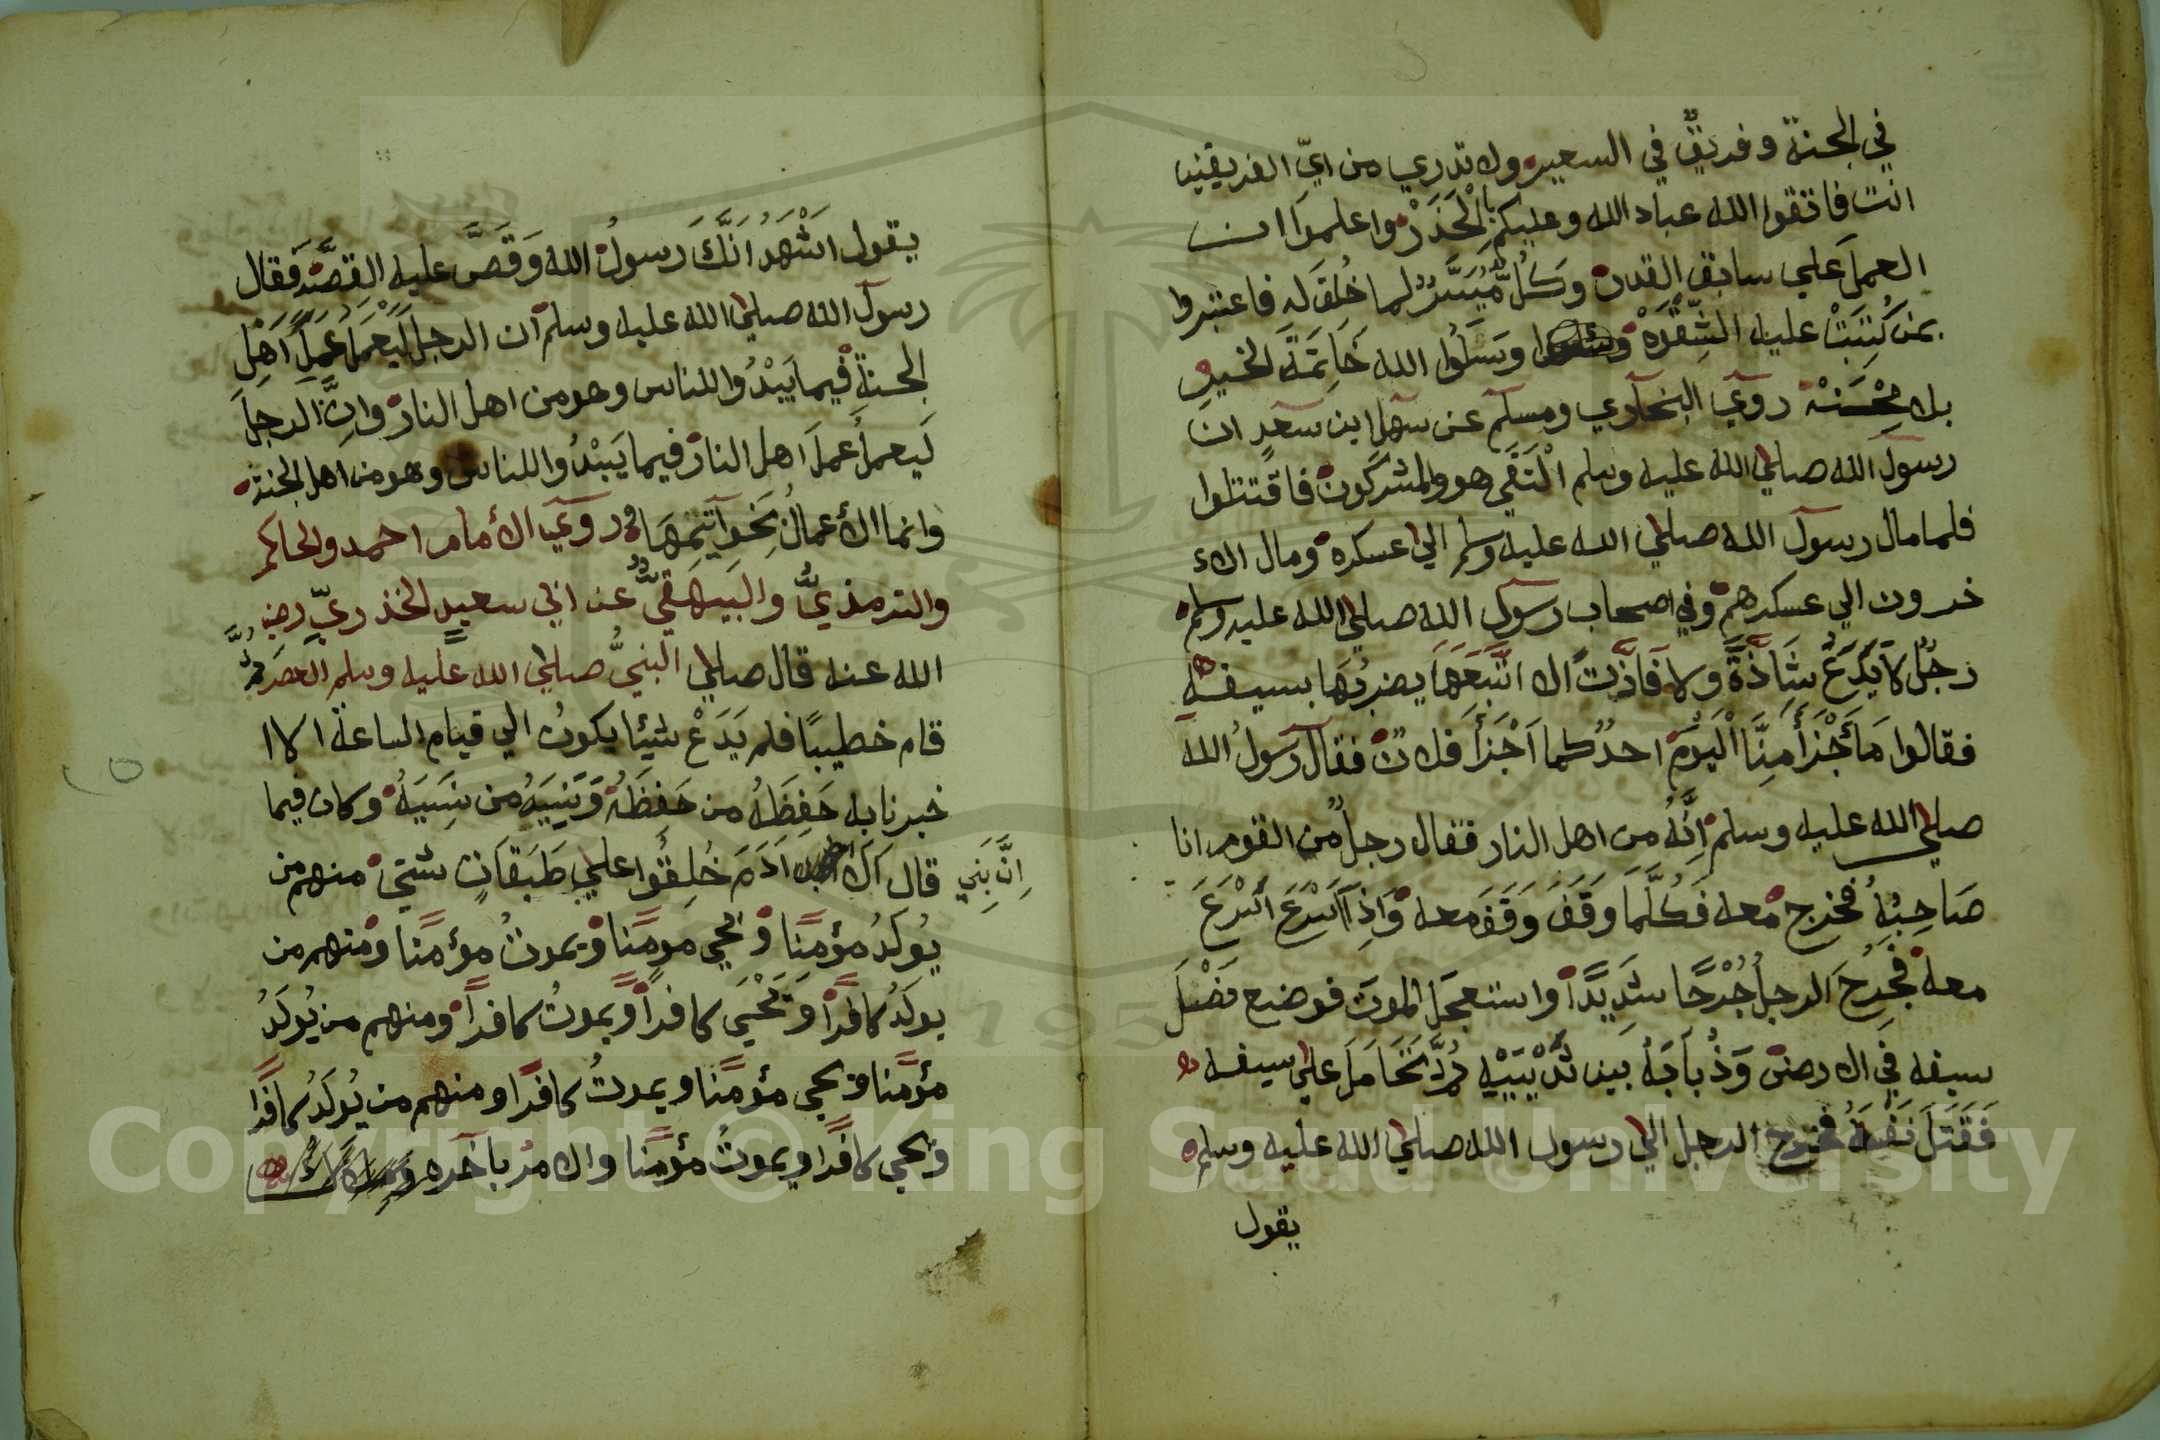 في الجنة وفريق في السعير ولا تدري من اي الفريقين
انت فاتقوا الله عباد الله وعليكم بالحذر واعلموا ان
العمل علي سابق القدر وكل ميسر لما خلق له فاعتبروا
بمن كتبت عليه الشقوة وسلوا الله خاتمة الخير
بلا محنة روي البخاري ومسلم عن سهل ابن سعد ان
رسول الله صلي الله عليه وسلم التقي هو والمشركون فاقتتلوا
فلما مال رسول الله صلي الله عليه وسلم الي عسكره ومال الاء
خرون الي عسكرهم وفي اصحاب رسول الله صلي الله عليه وسلم
رجل لا يدع شاذة ولا فاذت الا اتبعها يضربها بسيفه
فقالوا ما أجزأ منا اليوم احد كما اجزأ فلان فقال رسول الله
صلي الله عليه وسلم انه من اهل النار فقال رجل من القوم انا
صاحبه فخرج معه فكلما وقف وقف معه واذا اسرع اسرع
معه فجرح الرجل جرحا شديدا واستعجل الموت فوضع نصل
سيفه في الارض وذبابه بين ثدييه ثم تحامل علي سيفه
فقتل نفسه فخرج الرجل الي رسول الله صلي الله عليه وسلم
يقول
يقول اشهد انك رسول الله وقص عليه القصة فقال
رسول الله صلي الله عليه وسلم ان الرجل ليعمل عمل اهل
الجنة فيما يبدوا للناس وهو من اهل النار وان الرجل
ليعمل عمل اهل النار فيما يبدوا للناس وهو من اهل الجنة
وانما الأعمال بخواتيمها وروي الأمام احمد والحاكم
والترمذي والبيهقي عن ابي سعيد الخذري رضي
الله عنه قال صلي النبي صلي الله عليه وسلم العصر ثم
قام خطيبا فلم يدع شيئا يكون الي قيام الساعة الا ا
خبرنا به حفظه من حفظه ونسيه من نسيه وكان فيما
قال الا ان بني ادم خلقوا علي طبقات شتي منهم من
يولد مؤمنا ويحيي مومنا ويموت مؤمنا ومنهم من
يولد كافرا ويحيي كافرا ويموت كافرا ومنهم من يولد
مؤمنا ويحيي مؤمنا ويموت كافرا ومنهم من يولد كافرا
ويحيي كافرا ويموت مؤمنا والامر باخره
Copyright © King Saud University
1957